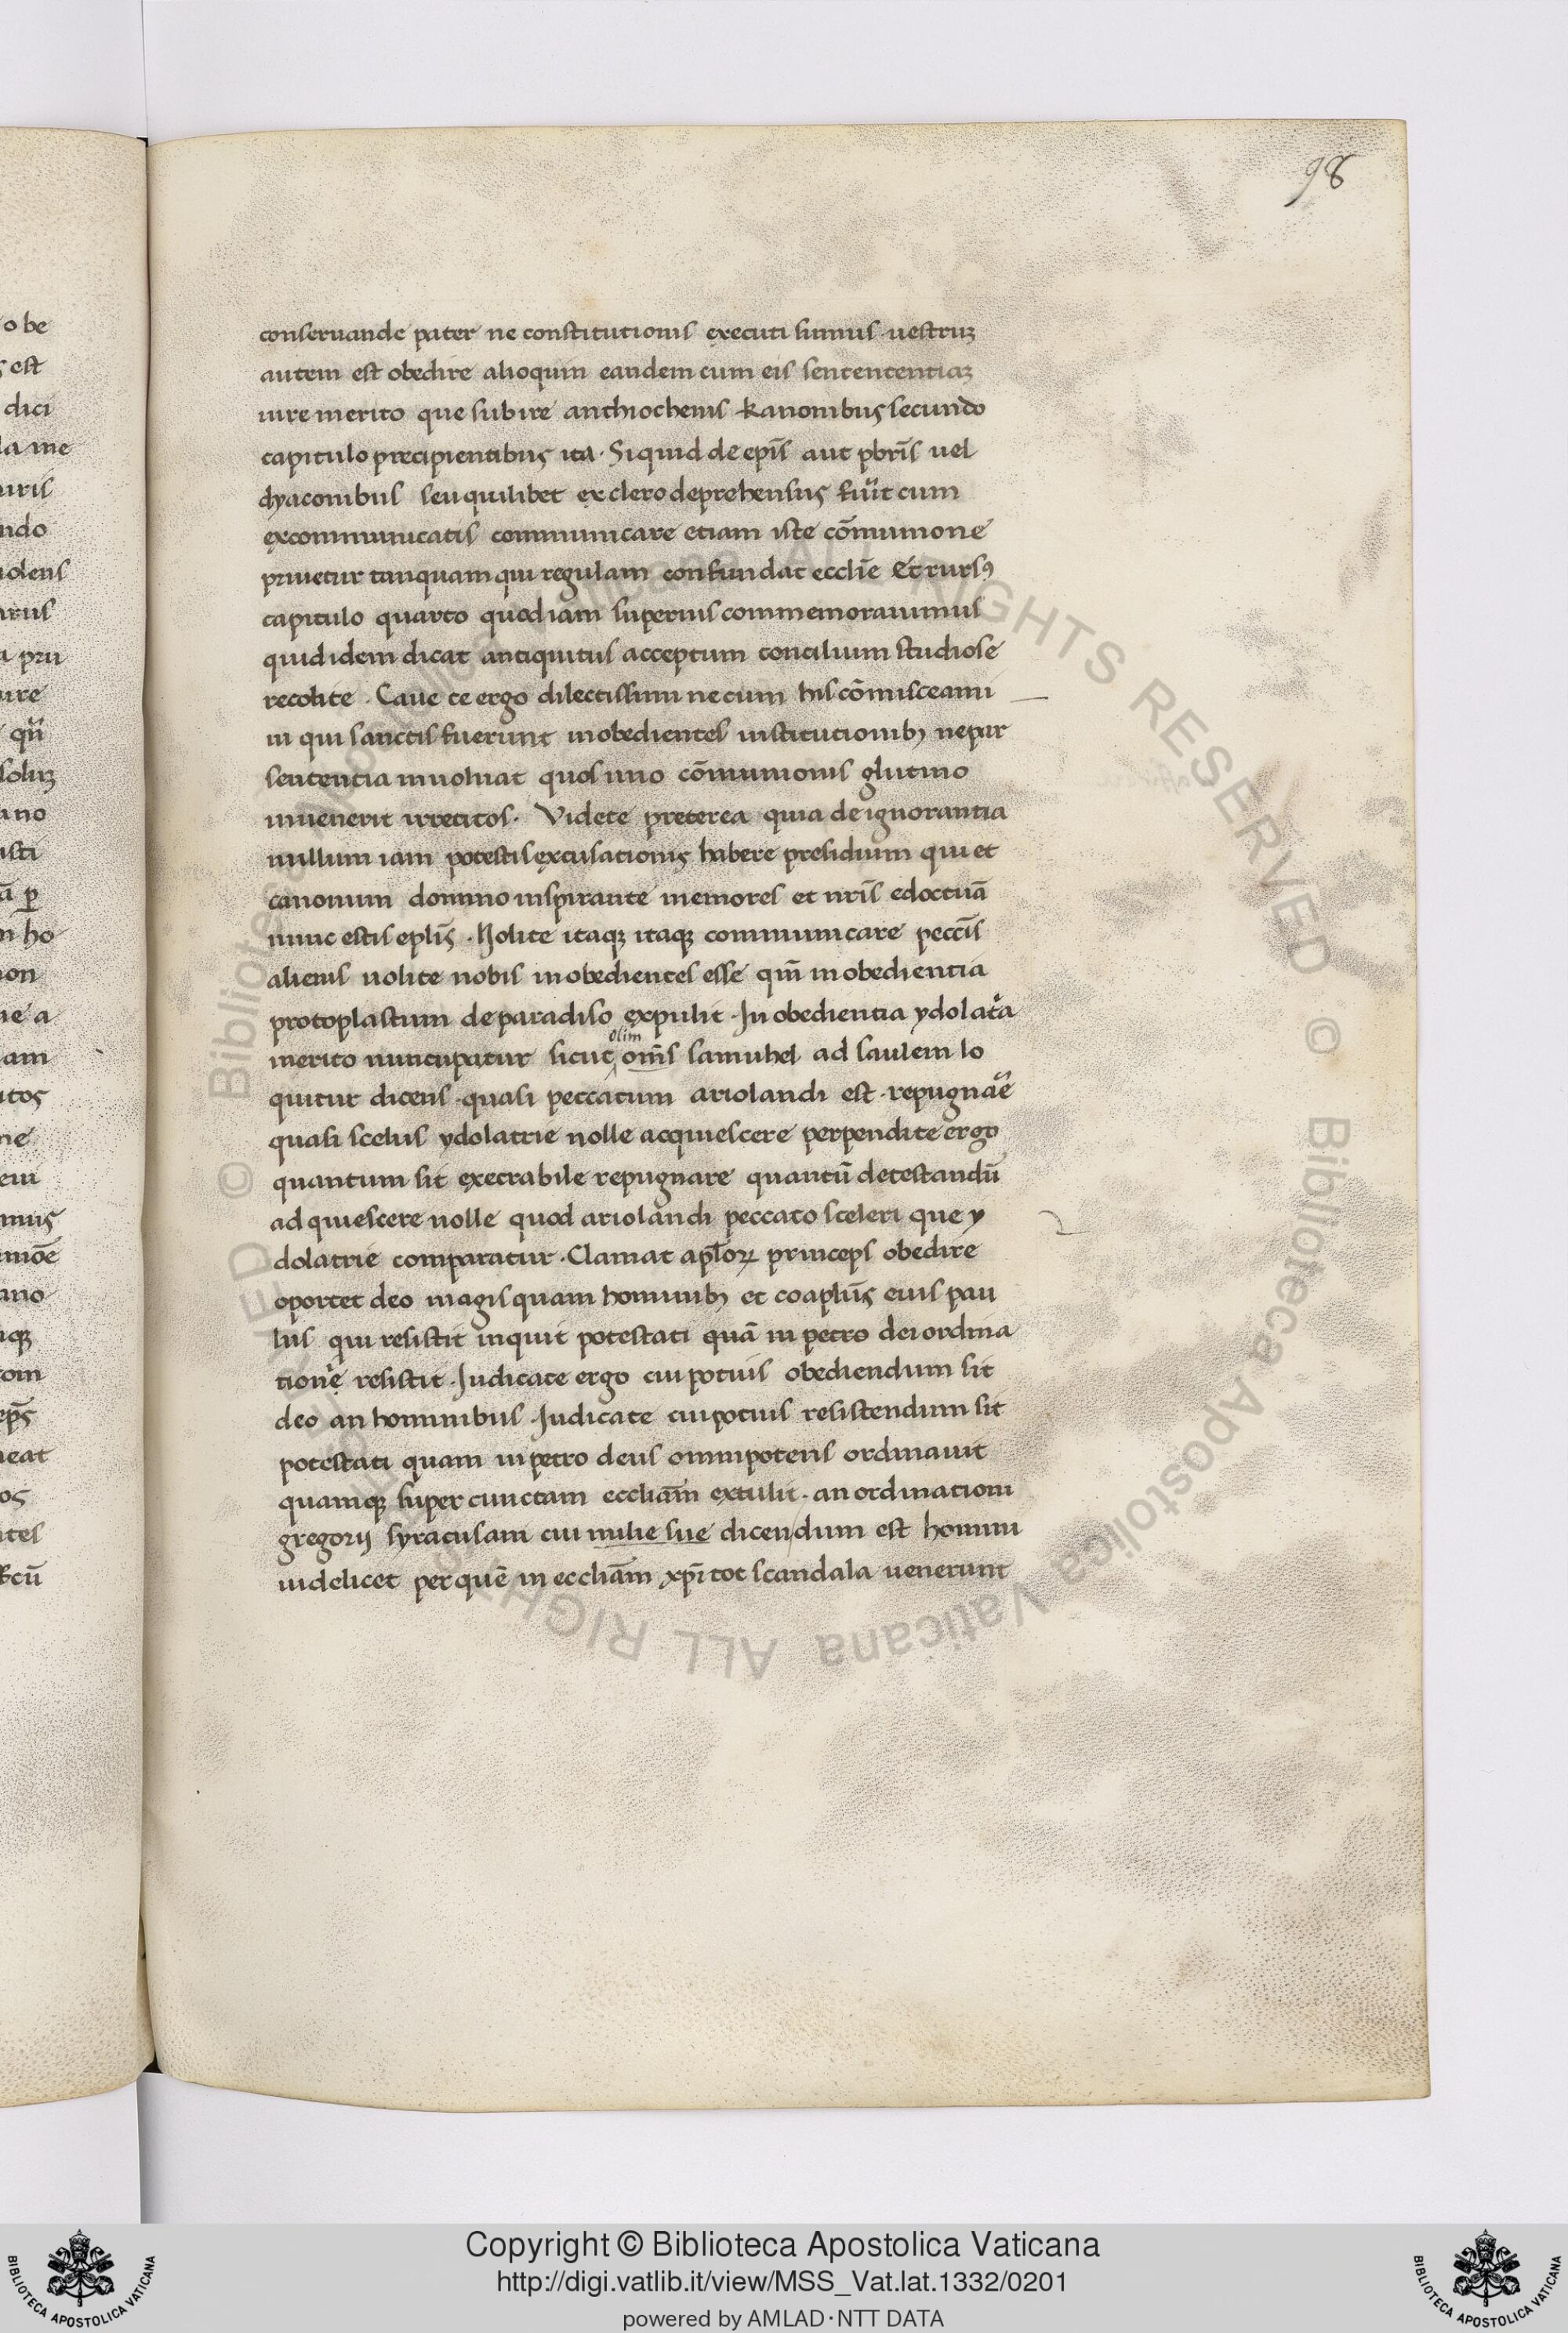 98
conseruande pater ne constitutionis executi sumus · uestruꝫ
autem est obedire alioquin eandem cum eis sentententiaꝫ
iure merito que subire anthiochenis kanonibus secundo
capitulo precipientibus ita · Si quid de ep̄is aut pb̄ris uel
dyaconibus seu quilibet ex clero deprehensus fuit cum
excommunicatis communicare etiam iste cōmunione
priuetur tanquam qui regulam confundat ecclīe Et rursꝰ
capitulo quarto quod iam superius commemorauimus
quid idem dicat antiquitus acceptum concilium studiose
recolite · Caue te ergo dilectissimi ne cum his cōmisceami
ni qui sanctis fuerunt inobedientes institutionibꝫ ne par
sententia inuoluat quos uno cōmunionis glutino
inuenerit irretitos · Videte preterea quia de ignorantia
nullum iam potestis excusationis habere presidium qui et
canonum domino inspirante memores et nr̄is edoctuā
nunc estis epl̄is · Nolite itaqꝫ itaqꝫ communicare pecc̄is
alienis nolite nobis inobedientes esse qm̄ inobedientia
protoplastum de paradiso expulit · In obedientia ydolatᵃa
olim
merito nuncupatur sicut om̄s samuhel ad saulem lo
quitur dicens · quasi peccatum ariolandi est · repugnaᵉe
quasi scelus ydolatrie nolle acquiescere perpendite ergo
quantum sit execrabile repugnare quantū detestandū
ad quiescere nolle quod ariolandi peccato sceleri que y
dolatrie comparatur · Clamat apl̄oꝝ princeps obedire
oportet deo magis quam hominibꝫ et coapl̄us eius pau
lus qui resistit inquit potestati quā in petro dei ordina
tione resistit · Iudicate ergo cui potius obediendum sit
deo an hominibus · Iudicate cui potius resistendum sit
potestati quam in petro deus omnipotens ordinauit
quamqꝫ super cunctam eccliām extulit · an ordinationi
gregorij syracusam cui milie sue dicendum est homini
uidelicet per quē in eccliām xp̄i tot scandala uenerunt
o be
est
dici
la me
uris
ndo
uolens
arus
a pru
ure
solus
ano
usti
n ho
non
ne a
iam
itos
ne
em
mus
ano
iqꝫ
tom
ep̄s
neat
os
ites
© Biblioteca Apostolica Vaticana ALL RIGHTS RESERVED © Biblioteca Apostolica Vaticana ALL RIGHTS RESERVED
BIBLIOTECA APOSTOLICA VATICANA
Copyright © Biblioteca Apostolica Vaticana
http://digi.vatlib.it/view/MSS_Vat.lat.1332/0201
powered by AMLAD·NTT DATA
BIBLIOTECA APOSTOLICA VATICANA